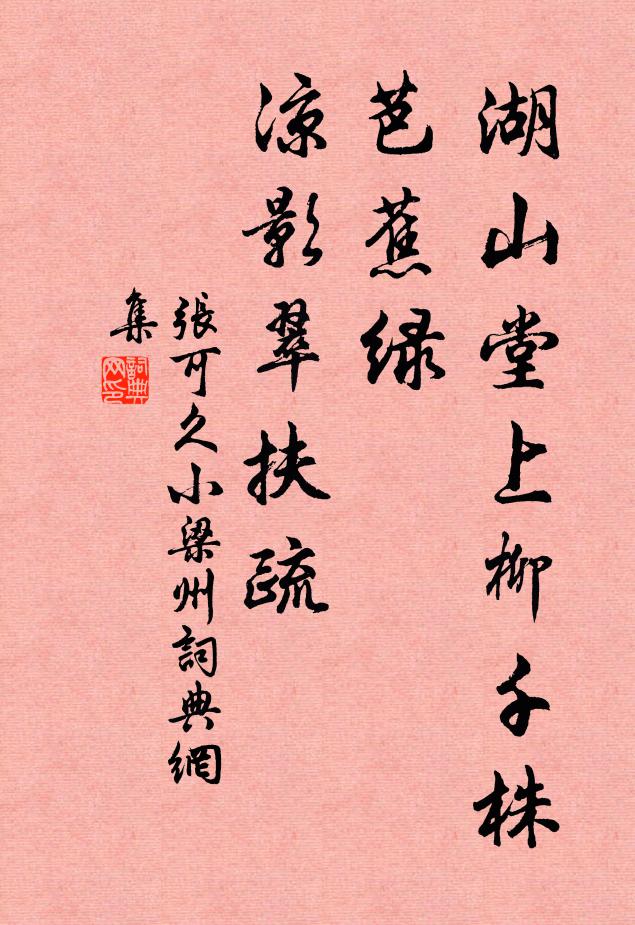 湖山堂上柳千株
芭蕉绿
凉影翠扶疏
張可久小梁州詞典網
集
詞典
网印